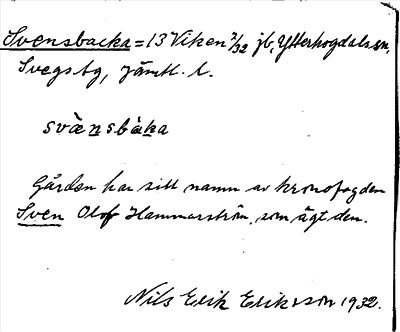 Svensbacka = 13 Viken 7/32 jb, Ytterhogdals sn,
Svegs tg, Jämtl. l.
svæ̀nsbàka
Gården har sitt namn av kronofogden
Sven Olof Hammarström, som ägt den.
Nils Erik Eriksson 1932.